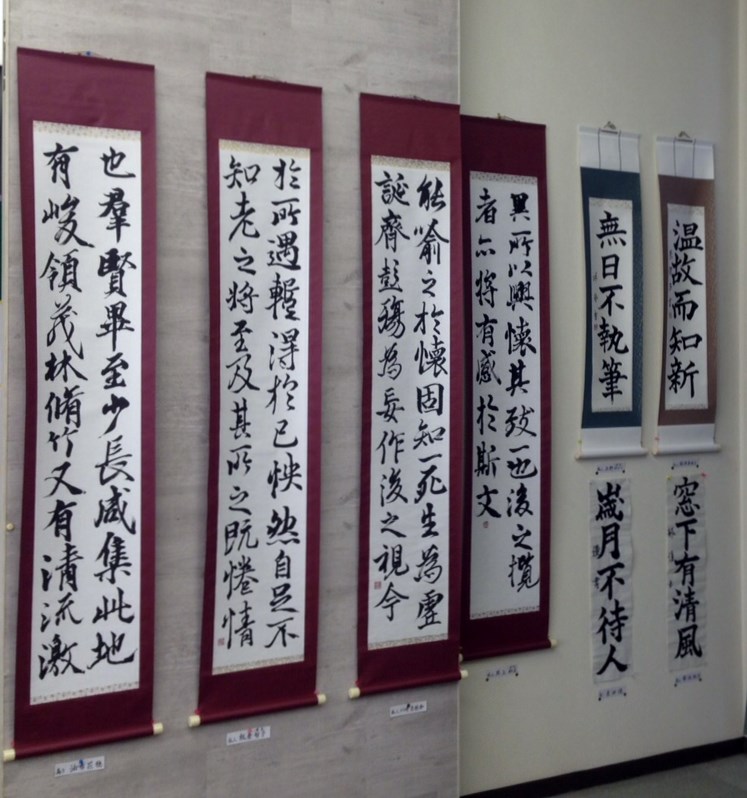 也羣賢畢至少長咸集此地
有峻領茂林脩竹又有清流激
於所遇蹔得於己怏然自足不
知老之將至及其所之既惓情
能喻之於懷固知一死生為虛
誕齊彭殤為妄作後之視今
異所以興懷其致一也後之攬
者亦將有感於斯文
無日不執筆
温故而知新
歳月不待人
窓下有清風